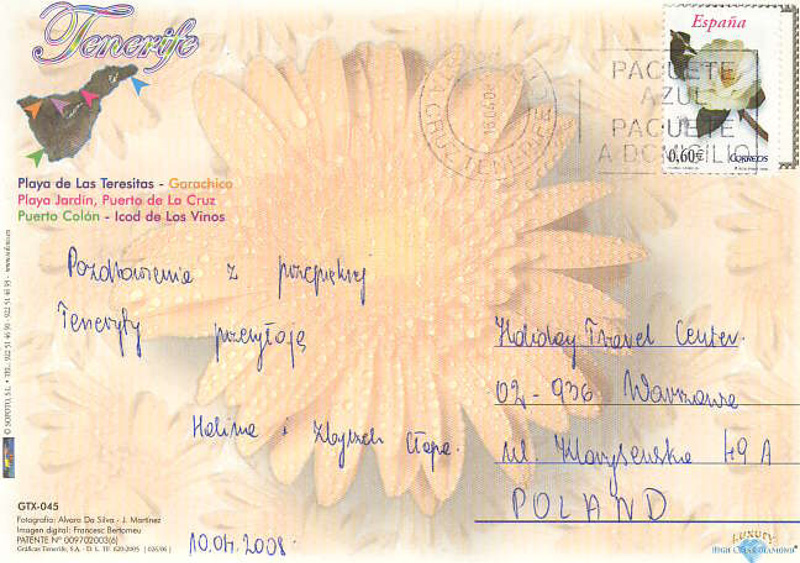 Tenerife
España
PAQUETE
AZUL
PAQUETE
A DOMICILIO
0,60€ CORREOS
16.04.08
STA CRUZ TENERIFE
Playa de Las Teresitas - Garachico
Playa Jardín, Puerto de La Cruz
Puerto Colón - Icod de Los Vinos
Pozdrowienia z przepięknej
Teneryfy przesyłają
Halina i Zbigniew
Holiday Travel Center.
02-936 Warszawa
ul. 49 A
POLAND
10.04.2008
© SOFOTO, S.L. • TEL. 922 51 46 90 - 922 51 46 95 - www.sofoto.es
GTX-045
Fotografía: Alvaro Da Silva - J. Martínez
Imagen digital: Francesc Bertomeu
PATENTE Nº 009702003(6)
Gráficas Tenerife, S.A. - D. L. TF. 620-2005
LUXURY
HIGH CLASS DIAMOND